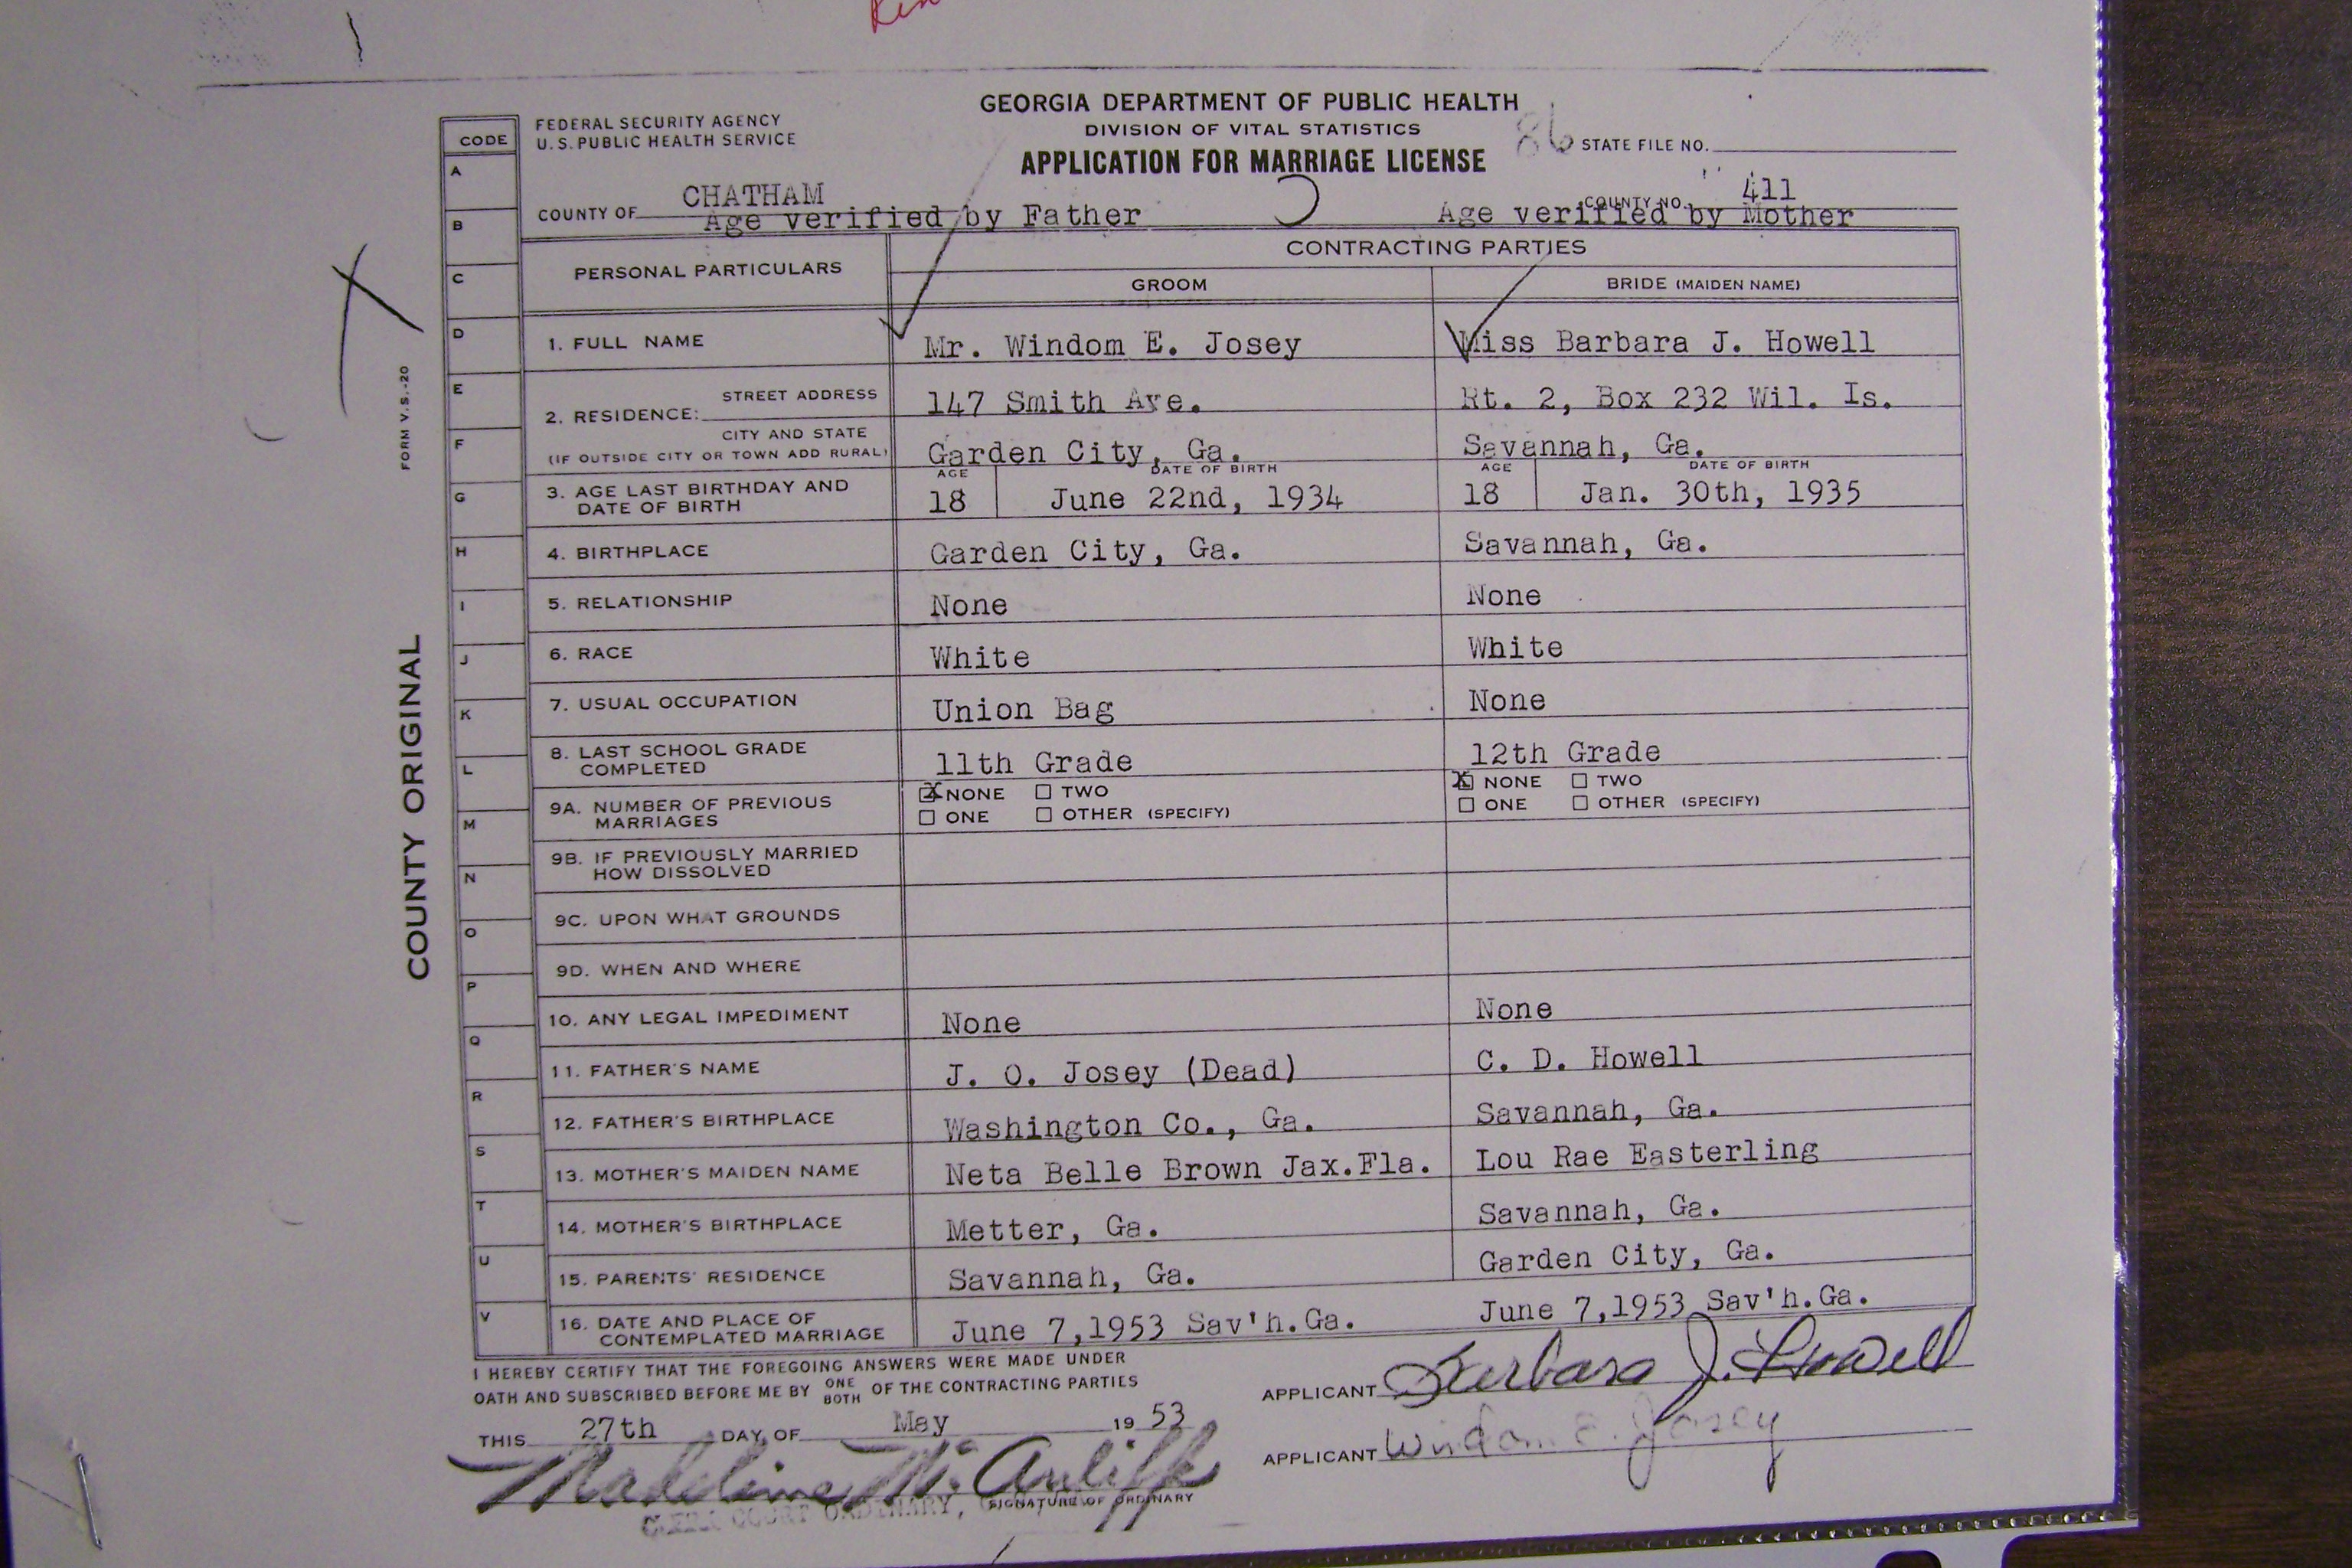 FEDERAL SECURITY AGENCY
U.S. PUBLIC HEALTH SERVICE
GEORGIA DEPARTMENT OF PUBLIC HEALTH
DIVISION OF VITAL STATISTICS
APPLICATION FOR MARRIAGE LICENSE
86 STATE FILE NO.
COUNTY OF CHATHAM
COUNTY NO. 411
Age verified by Father
Age verified by Mother
CODE
A
B
C
D
E
F
G
H
I
J
K
L
M
N
O
P
Q
R
S
T
U
V
FORM V.S.-20
COUNTY ORIGINAL
PERSONAL PARTICULARS
CONTRACTING PARTIES
GROOM BRIDE (MAIDEN NAME)
1. FULL NAME Mr. Windom E. Josey Miss Barbara J. Howell
STREET ADDRESS
2. RESIDENCE: 147 Smith Ave. Rt. 2, Box 232 Wil. Is.
CITY AND STATE
(IF OUTSIDE CITY OR TOWN ADD RURAL) Garden City, Ga. Savannah, Ga.
AGE DATE OF BIRTH AGE DATE OF BIRTH
3. AGE LAST BIRTHDAY AND
DATE OF BIRTH 18 June 22nd, 1934 18 Jan. 30th, 1935
4. BIRTHPLACE Garden City, Ga. Savannah, Ga.
5. RELATIONSHIP None None
6. RACE White White
7. USUAL OCCUPATION Union Bag None
8. LAST SCHOOL GRADE
COMPLETED 11th Grade 12th Grade
9A. NUMBER OF PREVIOUS
MARRIAGES
X NONE TWO X NONE TWO
ONE OTHER (SPECIFY) ONE OTHER (SPECIFY)
9B. IF PREVIOUSLY MARRIED
HOW DISSOLVED
9C. UPON WHAT GROUNDS
9D. WHEN AND WHERE
10. ANY LEGAL IMPEDIMENT None None
11. FATHER'S NAME J. O. Josey (Dead) C. D. Howell
12. FATHER'S BIRTHPLACE Washington Co., Ga. Savannah, Ga.
13. MOTHER'S MAIDEN NAME Neta Belle Brown Jax.Fla. Lou Rae Easterling
14. MOTHER'S BIRTHPLACE Metter, Ga. Savannah, Ga.
15. PARENTS' RESIDENCE Savannah, Ga. Garden City, Ga.
16. DATE AND PLACE OF
CONTEMPLATED MARRIAGE June 7,1953 Sav'h.Ga. June 7,1953 Sav'h.Ga.
I HEREBY CERTIFY THAT THE FOREGOING ANSWERS WERE MADE UNDER
OATH AND SUBSCRIBED BEFORE ME BY ONE BOTH OF THE CONTRACTING PARTIES
APPLICANT Barbara J. Howell
THIS 27th DAY OF May 19 53
APPLICANT Windom E. Josey
Madeline McAuliffe
SIGNATURE OF ORDINARY
CLERK COURT ORDINARY,